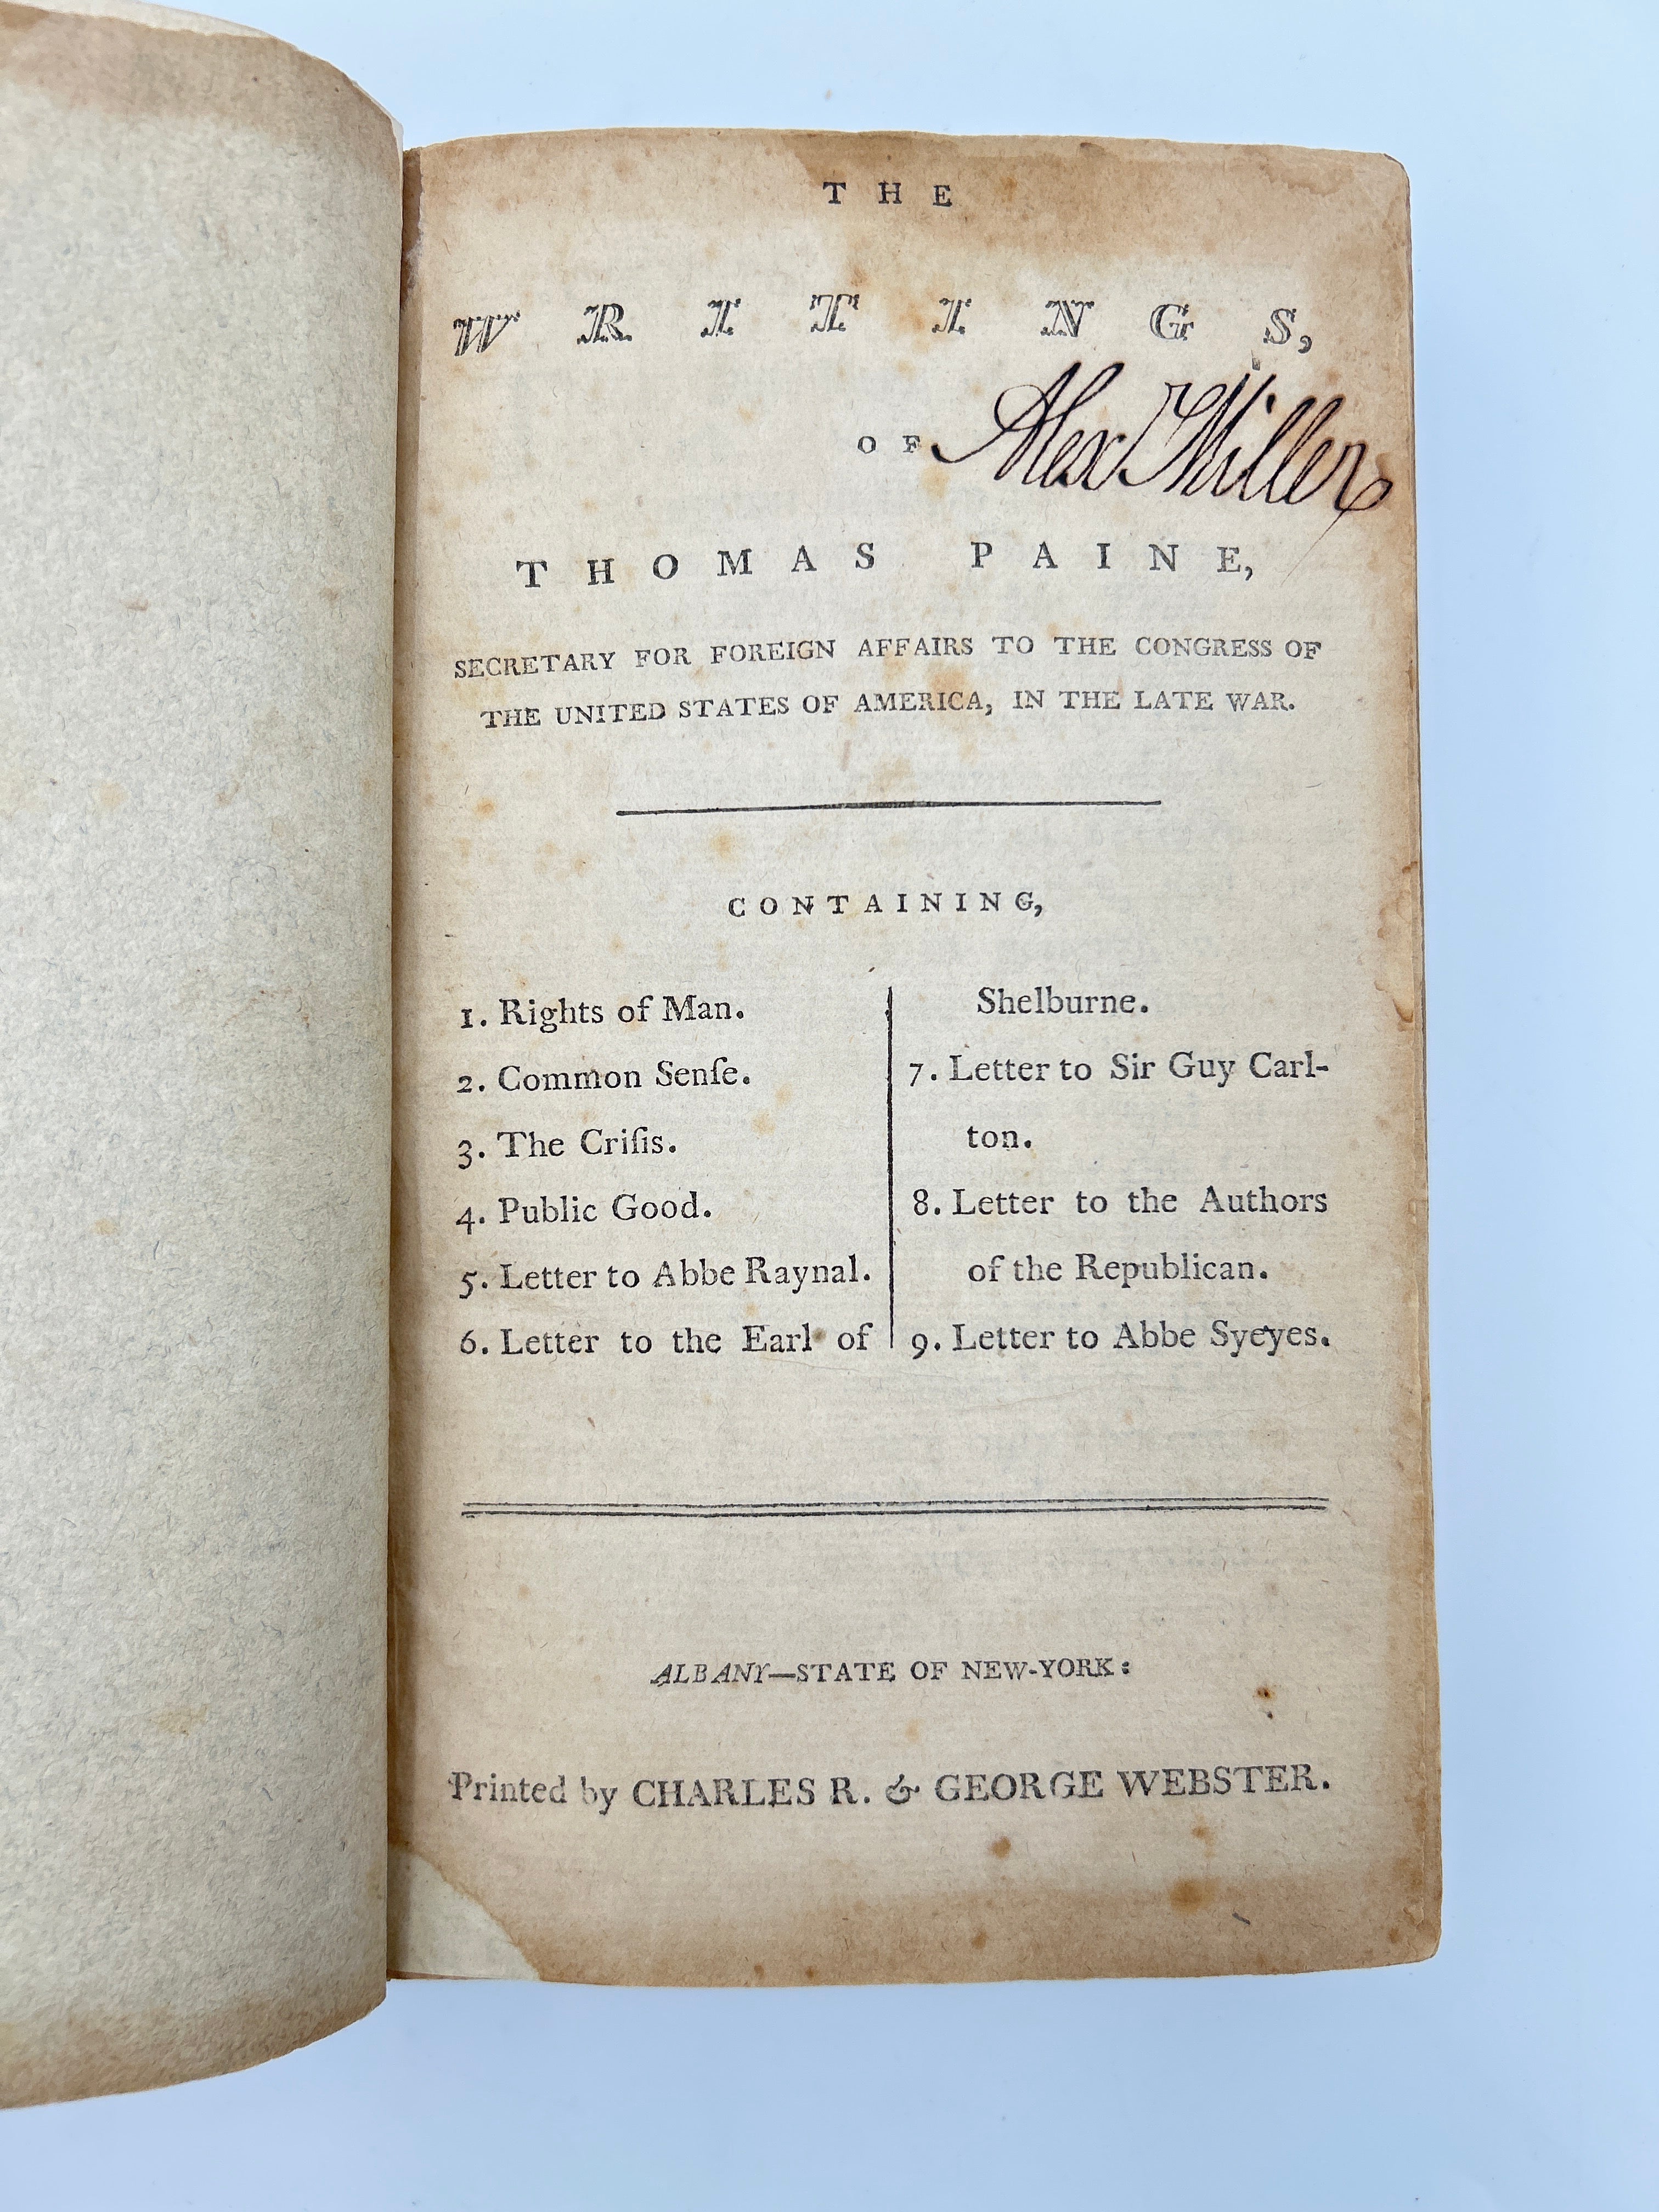 THE
WRITINGS,
OF
Alex Miller
THOMAS PAINE,
SECRETARY FOR FOREIGN AFFAIRS TO THE CONGRESS OF
THE UNITED STATES OF AMERICA, IN THE LATE WAR.
CONTAINING,
1. Rights of Man.
2. Common Senſe.
3. The Criſis.
4. Public Good.
5. Letter to Abbe Raynal.
6. Letter to the Earl of
Shelburne.
7. Letter to Sir Guy Carl-
ton.
8. Letter to the Authors
of the Republican.
9. Letter to Abbe Syeyes.
ALBANY—STATE OF NEW-YORK:
Printed by CHARLES R. & GEORGE WEBSTER.